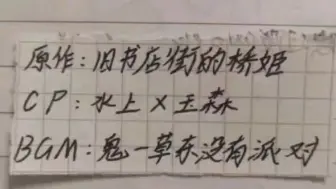 原作：旧书店街的桥姬
CP：水上×玉森
BGM：鬼一草东没有派对